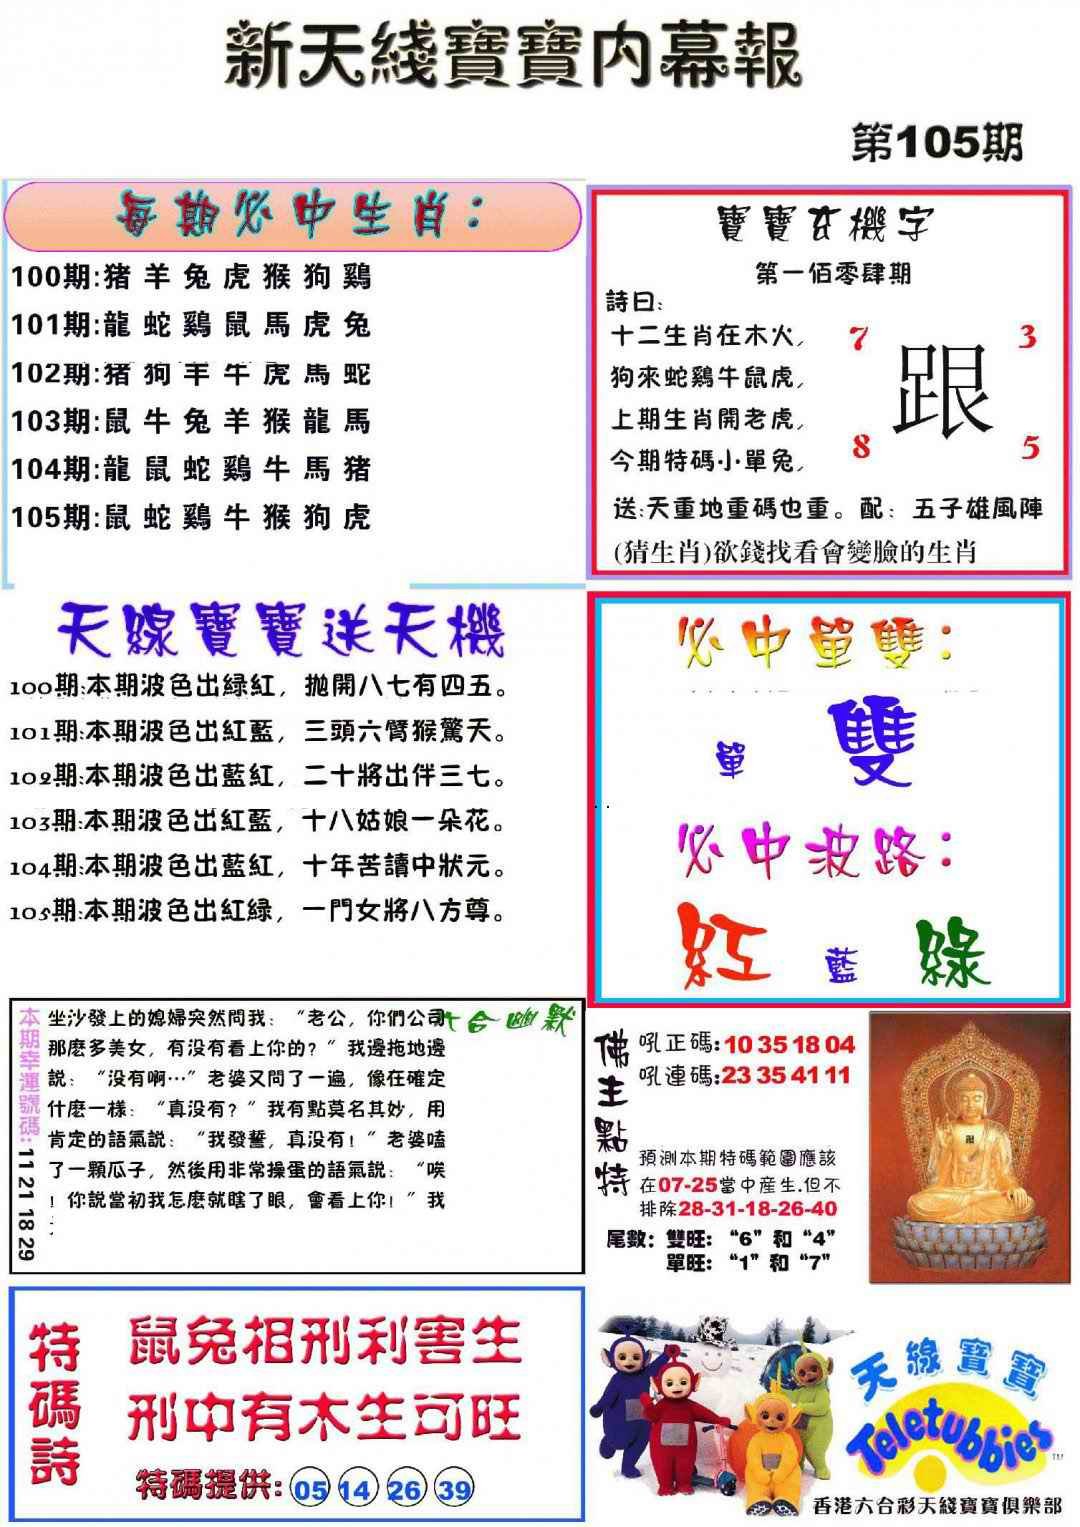 新天綫寶寶内幕報
第105期
每期必中生肖：
100期:猪 羊 兔 虎 猴 狗 鷄
101期:龍 蛇 鷄 鼠 馬 虎 兔
102期:猪 狗 羊 牛 虎 馬 蛇
103期:鼠 牛 兔 羊 猴 龍 馬
104期:龍 鼠 蛇 鷄 牛 馬 猪
105期:鼠 蛇 鷄 牛 猴 狗 虎
寶寶玄機字
第一佰零肆期
詩曰:
十二生肖在木火,
狗來蛇鷄牛鼠虎,
上期生肖開老虎,
今期特碼小單兔,
7 3
跟
8 5
送:天重地重碼也重。配：五子雄風陣
(猜生肖)欲錢找看會變臉的生肖
天線寶寶送天機
100期:本期波色出緑紅，抛開八七有四五。
101期:本期波色出紅藍，三頭六臂猴驚天。
102期:本期波色出藍紅，二十將出伴三七。
103期:本期波色出紅藍，十八姑娘一朵花。
104期:本期波色出藍紅，十年苦讀中狀元。
105期:本期波色出紅緑，一門女將八方尊。
必中單雙：
單 雙
必中波路：
紅 藍 綠
本期幸運號碼: 11 21 18 29
六合幽默
坐沙發上的媳婦突然問我：“老公，你們公司
那麽多美女，有没有看上你的？”我邊拖地邊
説：“没有啊…”老婆又問了一遍，像在確定
什麽一樣：“真没有？”我有點莫名其妙，用
肯定的語氣説：“我發誓，真没有！”老婆嗑
了一顆瓜子，然後用非常操蛋的語氣説：“唉
！你説當初我怎麽就瞎了眼，會看上你！”我
佛主點特
吼正碼:10 35 18 04
吼連碼:23 35 41 11
預測本期特碼範圍應該
在07-25當中産生.但不
排除28-31-18-26-40
尾數：雙旺：“6”和“4”
單旺：“1”和“7”
特碼詩
鼠兔相刑利害生
刑中有木生可旺
特碼提供: 05 14 26 39
天線寶寶
Teletubbies TM
香港六合彩天綫寶寶俱樂部